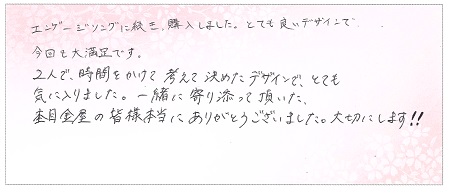 エンゲージリングに続き、購入しました。とても良いデザインで
今回も大満足です。
2人で、時間をかけて考えて決めたデザインで、とても
気に入りました。一緒に寄り添って頂いた、
杢目金屋の皆様本当にありがとうございました。大切にします!!